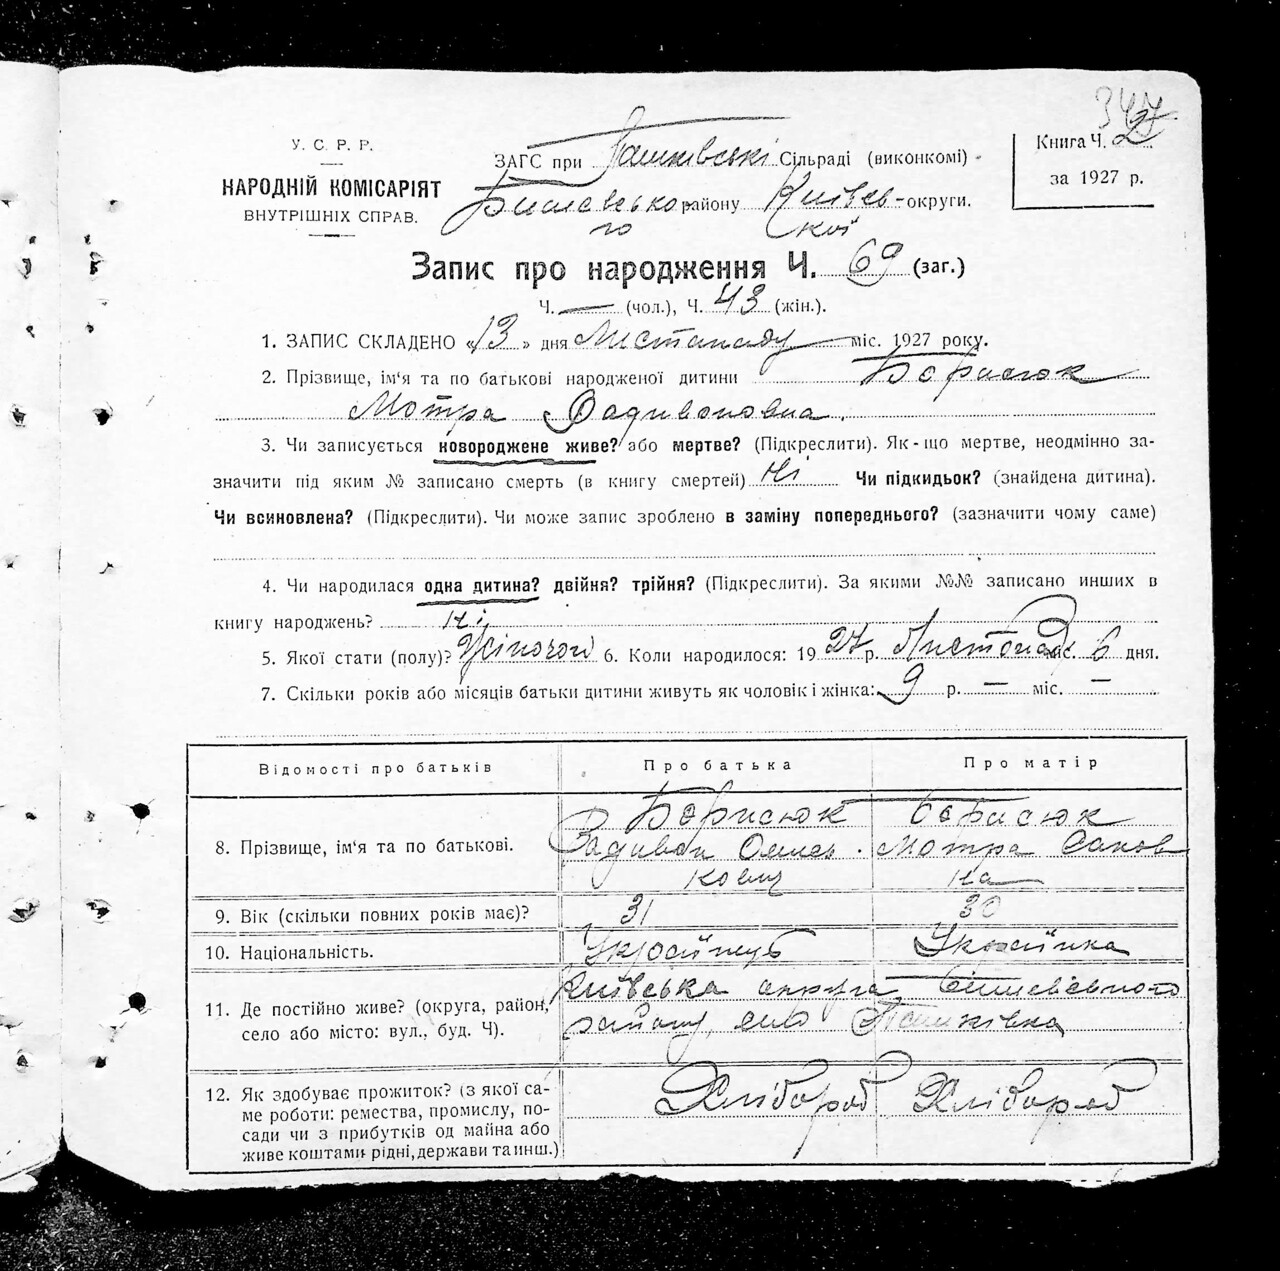 347
У. С. Р. Р.
НАРОДНІЙ КОМІСАРІЯТ
ВНУТРІШНІХ СПРАВ.
ЗАГС при Пашківські Сільраді (виконкомі)
Бишевсько- району Київсь- округи.
го кої
Книга Ч. 2
за 1927 р.
Запис про народження Ч. 69 (заг.)
Ч. — (чол.), Ч. 43 (жін.).
1. ЗАПИС СКЛАДЕНО «13» дня Листападу міс. 1927 року.
2. Прізвище, ім'я та по батькові народженої дитини Борисюк
Мотра Радивоновна.
3. Чи записується новороджене живе? або мертве? (Підкреслити). Як-що мертве, неодмінно за-
значити під яким № записано смерть (в книгу смертей) Ні Чи підкидьок? (знайдена дитина).
Чи всиновлена? (Підкреслити). Чи може запис зроблено в заміну попереднього? (зазначити чому саме)
4. Чи народилася одна дитина? двійня? трійня? (Підкреслити). За якими №№ записано инших в
книгу народжень? Ні
5. Якої стати (полу)? Жіночої 6. Коли народилося: 1927 р. Листопад міс. 6 дня.
7. Скільки років або місяців батьки дитини живуть як чоловік і жінка: 9 р. — міс. —
Відомості про батьків Про батька Про матір
8. Прізвище, ім'я та по батькові. Борисюк Борисюк
Радивон Омель- Мотра Савов
кович на
9. Вік (скільки повних років має)? 31 30
10. Національність. Українець Українка
11. Де постійно живе? (округа, район, село або місто: вул., буд. Ч). Київська округа, Бишевського
району, село Пашківка
12. Як здобуває прожиток? (з якої са-
ме роботи: ремества, промислу, по-
сади чи з прибутків од майна або
живе коштами рідні, держави та инш.) Хлібороб Хлібороб